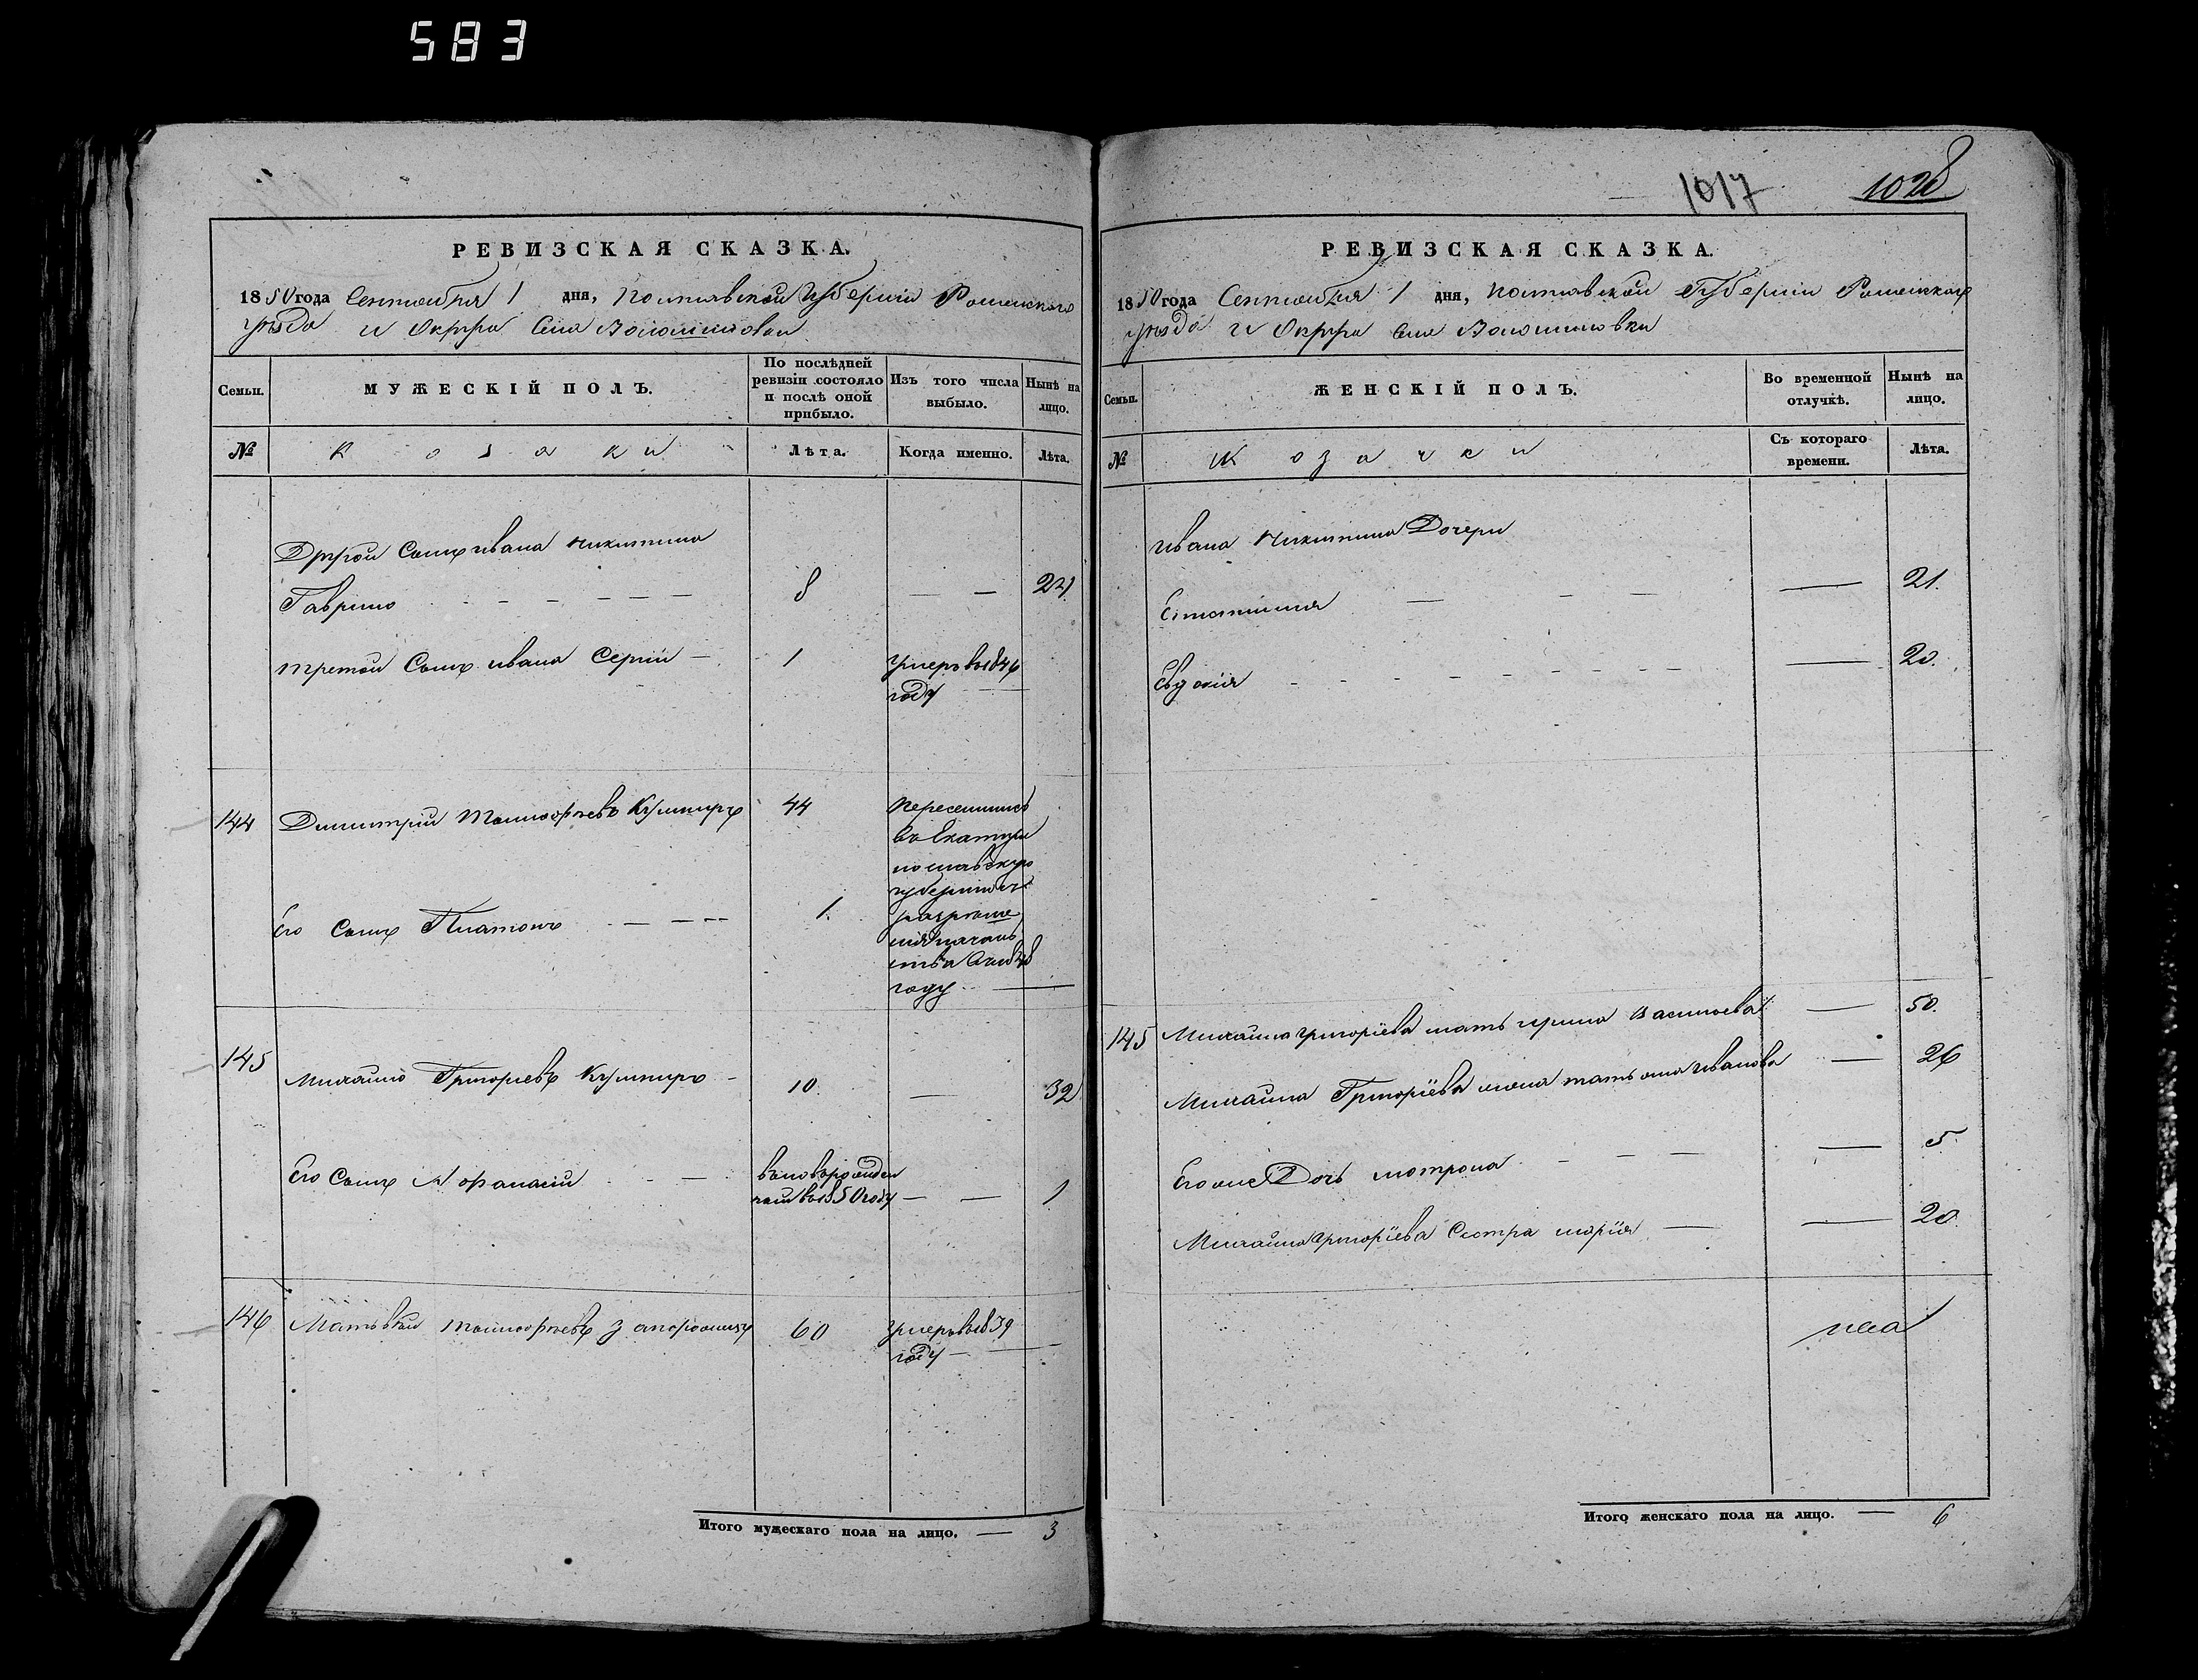 583
1017 1028
РЕВИЗСКАЯ СКАЗКА.
1850 года Сентября 1 дня, Полтавской Губерніи Роменского
уезда и Округа Села Волошиновки
Семьи.
МУЖЕСКІЙ ПОЛЪ.
По послѣдней ревизіи состояло и послѣ оной прибыло.
Изъ того числа выбыло.
Нынѣ на лицо.
№ Козаки Лѣта. Когда именно. Лѣта.
Другой Сынъ ивана никитина
Гаврило 8 — —
третой Сынъ ивана Сергій — 1 умеръ в 1846
году —
144 Димитрій Тимофѣевъ Кушниръ 44 Переселились
въ Екатери
нославскую
губернію съ
разреше
нія началь
ства в 1848
году
Его Сынъ Платонъ 1.
145 Михайло Григорьевъ Кушниръ — 10. — 32
Его Сынъ Афанасій — — въновьрожден
1850 году — — 1
146 Матвѣй Тимофѣевъ Запорожецъ 60 умеръ в 1839
году —
Итого мужескаго пола на лицо. — 3
РЕВИЗСКАЯ СКАЗКА.
1850 года Сентября 1 дня, Полтавской Губерніи Роменского
уезда и Округа Села Волошиновки
Семьи.
ЖЕНСКІЙ ПОЛЪ.
Во временной отлучкѣ.
Нынѣ на лицо.
№ Козачки Съ котораго времени. Лѣта.
Ивана Никитина Дочери
— 21.
Евдокія — 20.
145 Михайла григоріева мать ирина Васильева — 50.
Михайла Григоріева жена татьяна Иванова — 26
Его же Дочь мотрона — — — — 5.
Михайла григоріева Сестра марія — — 20.
Итого женскаго пола на лицо. — 6